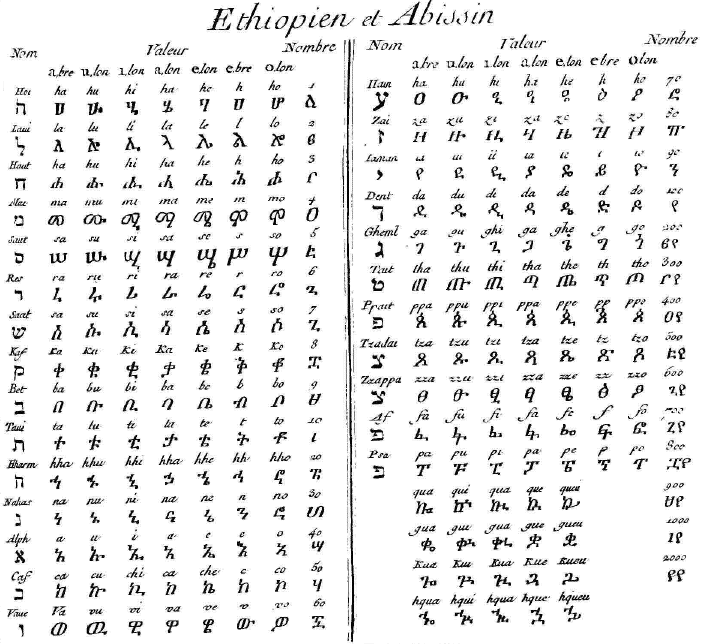 Ethiopien et Abissin
Nom Valeur Nombre
a.bre u.lon i.lon a.lon e.lon e.bre o.lon
Hoi ha hu hi ha he h ho 1
ה ሀ ሁ ሂ ሃ ሄ ህ ሆ ፩
Laui la lu li la le l lo 2
ל ለ ሉ ሊ ላ ሌ ል ሎ ፪
Haut ha hu hi ha he h ho 3
ח ሐ ሑ ሒ ሓ ሔ ሕ ሖ ፫
Mai ma mu mi ma me m mo 4
מ መ ሙ ሚ ማ ሜ ም ሞ ፬
Saut sa su si sa se s so 5
ס ሠ ሡ ሢ ሣ ሤ ሥ ሦ ፭
Res ra ru ri ra re r ro 6
ר ረ ሩ ሪ ራ ሬ ር ሮ ፮
Saat sa su si sa se s so 7
ש ሰ ሱ ሲ ሳ ሴ ስ ሶ ፯
Kaf Ka Ku Ki Ka Ke K Ko 8
ק ቀ ቁ ቂ ቃ ቄ ቅ ቆ ፰
Bet ba bu bi ba be b bo 9
ב በ ቡ ቢ ባ ቤ ብ ቦ ፱
Taui ta tu ti ta te t to 10
ת ተ ቱ ቲ ታ ቴ ት ቶ ፲
Hharm hha hhu hhi hha hhe hh hho 20
ח ኀ ኁ ኂ ኃ ኄ ኅ ኆ ፳
Nahas na nu ni na ne n no 30
נ ነ ኑ ኒ ና ኔ ን ኖ ፴
Alph a u i a e e o 40
א አ ኡ ኢ ኣ ኤ እ ኦ ፵
Caf ca cu chi ca che c co 50
כ ከ ኩ ኪ ካ ኬ ክ ኮ ፶
Vaue Va vu vi va ve v vo 60
ו ወ ዉ ዊ ዋ ዌ ው ዎ ፷
Nom Valeur Nombre
a.bre u.lon i.lon a.lon e.lon e.bre o.lon
Hain ha hu hi ha he h ho 70
ע ዐ ዑ ዒ ዓ ዔ ዕ ዖ ፸
Zai za zu zi za ze z zo 80
ז ዘ ዙ ዚ ዛ ዜ ዝ ዞ ፹
Jaman ia iu ii ia ie i io 90
י የ ዩ ዪ ያ ዬ ይ ዮ ፺
Dent da du di da de d do 100
ד ደ ዱ ዲ ዳ ዴ ድ ዶ ፻
Gheml ga gu ghi ga ghe g go 200
ג ገ ጉ ጊ ጋ ጌ ግ ጎ ፪፻
Tait tha thu thi tha the th tho 300
ט ጠ ጡ ጢ ጣ ጤ ጥ ጦ ፫፻
Ppait ppa ppu ppi ppa ppe pp ppo 400
פ ጰ ጱ ጲ ጳ ጴ ጵ ጶ ፬፻
Tzadai tza tzu tzi tza tze tz tzo 500
צ ጸ ጹ ጺ ጻ ጼ ጽ ጾ ፭፻
Zzappa zza zzu zzi zza zze zz zzo 600
צ ፀ ፁ ፂ ፃ ፄ ፅ ፆ ፮፻
Af fa fu fi fa fe f fo 700
פ ፈ ፉ ፊ ፋ ፌ ፍ ፎ ፯፻
Psa pa pu pi pa pe p po 800
פ ፐ ፑ ፒ ፓ ፔ ፕ ፖ ፰፻
qua qui qua que queu 900
ኰ ኲ ኳ ኴ ኵ ፱፻
gua gui gua gue gueu 1000
ቈ ቊ ቋ ቌ ቍ ፲፻
Kua Kui Kua Kue Kueu 2000
ጐ ጒ ጓ ጔ ጕ
hqua hqui hqua hque hqueu
ኈ ኊ ኋ ኌ ኍ